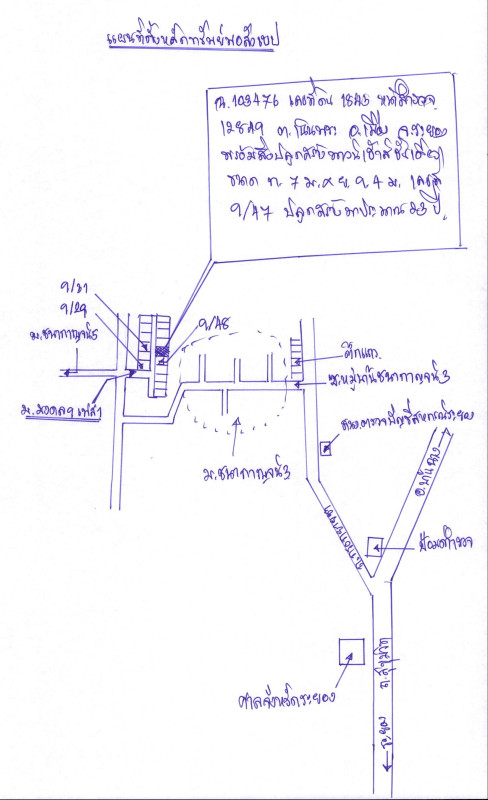 แผนที่ตั้งหลักทรัพย์พอสังเขป
ฉ.103476 เลขที่ดิน 1843 หน้าสำรวจ
12849 ต.เนินพระ อ.เมือง จ.ระยอง
พร้อมสิ่งปลูกสร้างทาวน์เฮ้าส์ชั้นเดียว
ขนาด ก. 7 ม. × ย. 9.4 ม. เลขที่
9/47 ปลูกสร้างมาประมาณ 23 ปี
9/31
9/29
ม.ธนากาญจน์5
9/48
ตึกแถว
ซ.หมู่บ้านธนากาญจน์3
ม.มณฑลฯ เก่า
ม.ธนากาญจน์3
สนง.ตรวจบัญชีสหกรณ์ระยอง
อ.บ้านฉาง
ป้อมตำรวจ
ศาลจังหวัดระยอง
ถ.สุขุมวิท
ระยอง